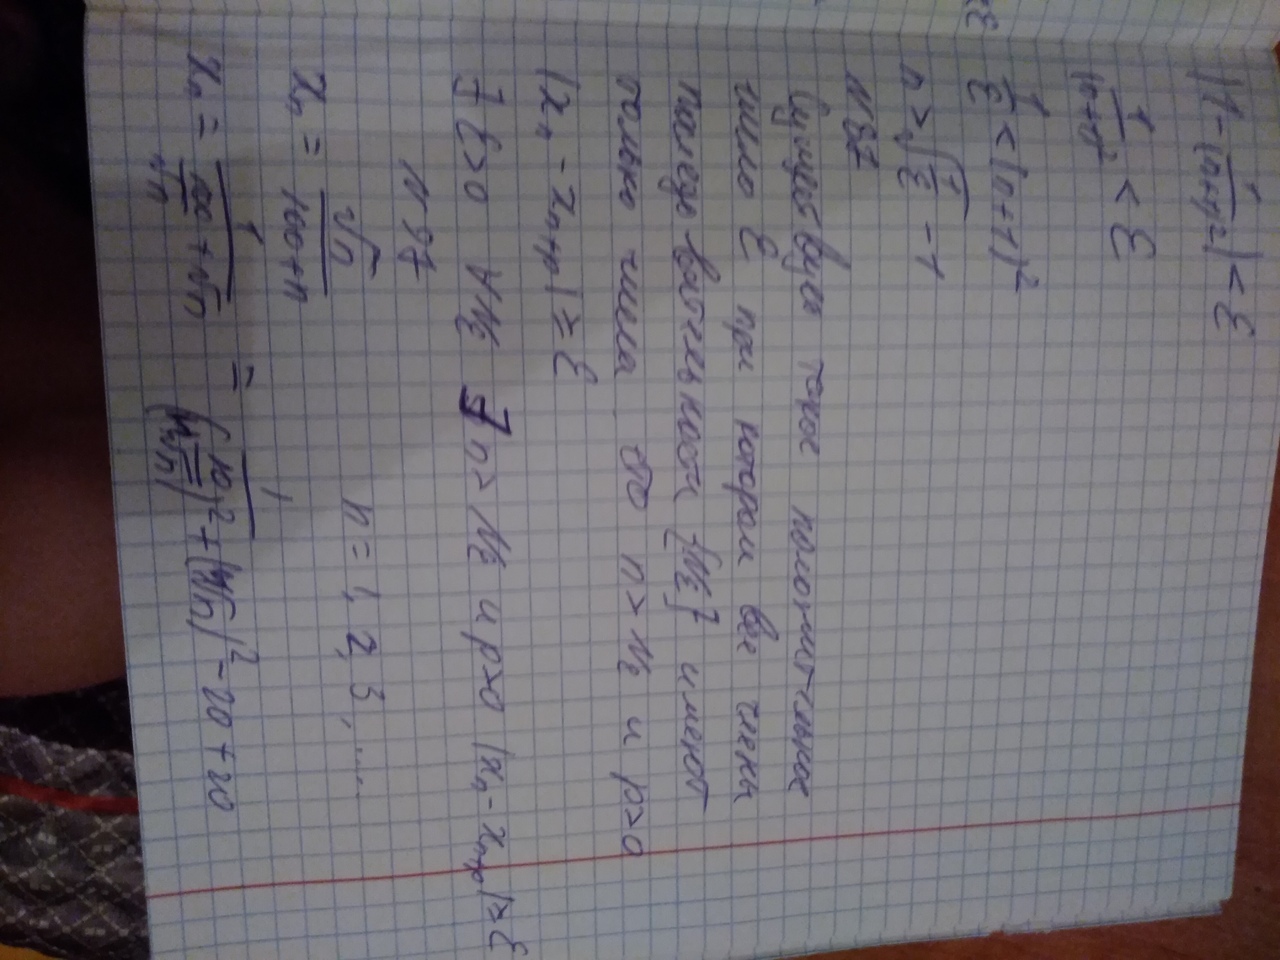 |1 - 1/(n+1)²| < ε
1/(n+1)² < ε
1/ε < (n+1)²
n > √(1/ε) - 1
N 87
Существует такое положительное
число ε при котором все члены
последовательности {Nε} имеют
только числа что n > Nε и p>0
|xn - xn+p| ≥ ε
∃ ε>0 ∀Nε ∃ n> Nε и p>0 |xn - xn+p| ≥ ε
N 97
xn = √n/(100+n) n = 1, 2, 3, ....